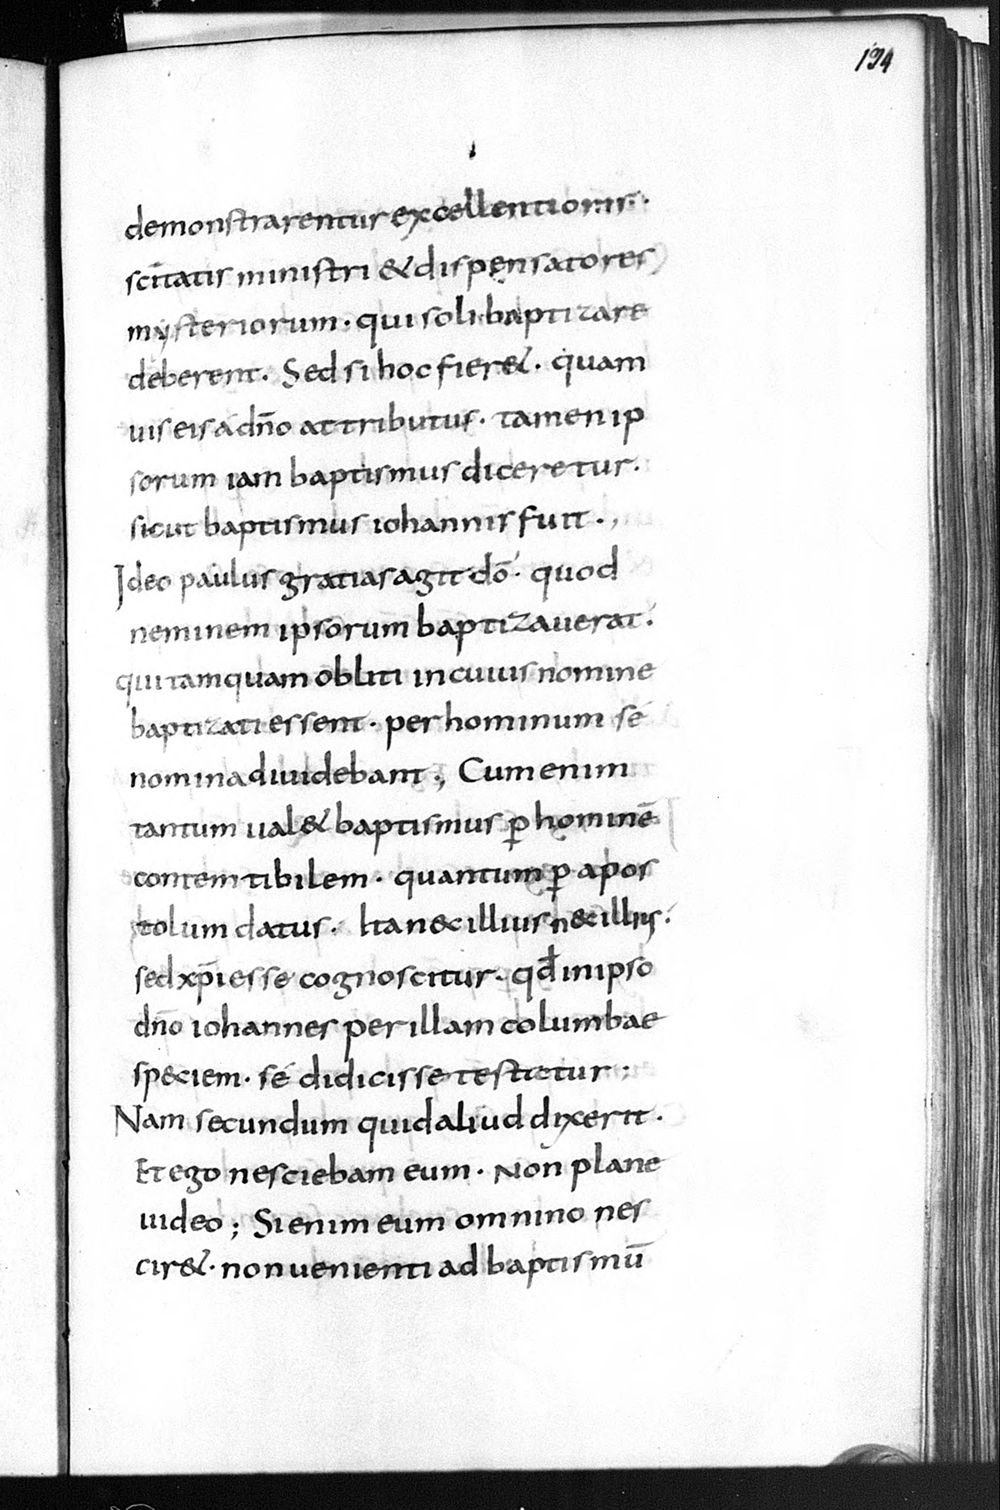 194
demonstrarentur excellentioris·
scītatis ministri & dispensatores
mysteriorum· qui soli baptizare
deberent· Sed si hoc fier&· quam
uis eis a dn̄o attributus· tamen ip
sorum iam baptismus diceretur·
sicut baptismus iohannis fuit·,
Ideo paulus gratias agit dō· quod
neminem ipsorum baptizauerat·
qui tamquam obliti in cuius nomine
baptizati essent· per hominum sé
nomina diuidebant·, Cum enim
tantum ual& baptismus ꝑ hominē
contemtibilem· quantum ꝑ apos
tolum datus· Ita nec illius nec illius·
sed xp̄i esse cognoscitur· qd̄ in ipso
dn̄o iohannes per illam columbae
speciem· sé didicisse testatur;
Nam secundum quid aliud dixerit·
Et ego nesciebam eum· Non plane
uideo; Si enim eum omnino nes
cir&· non uenienti ad baptismū